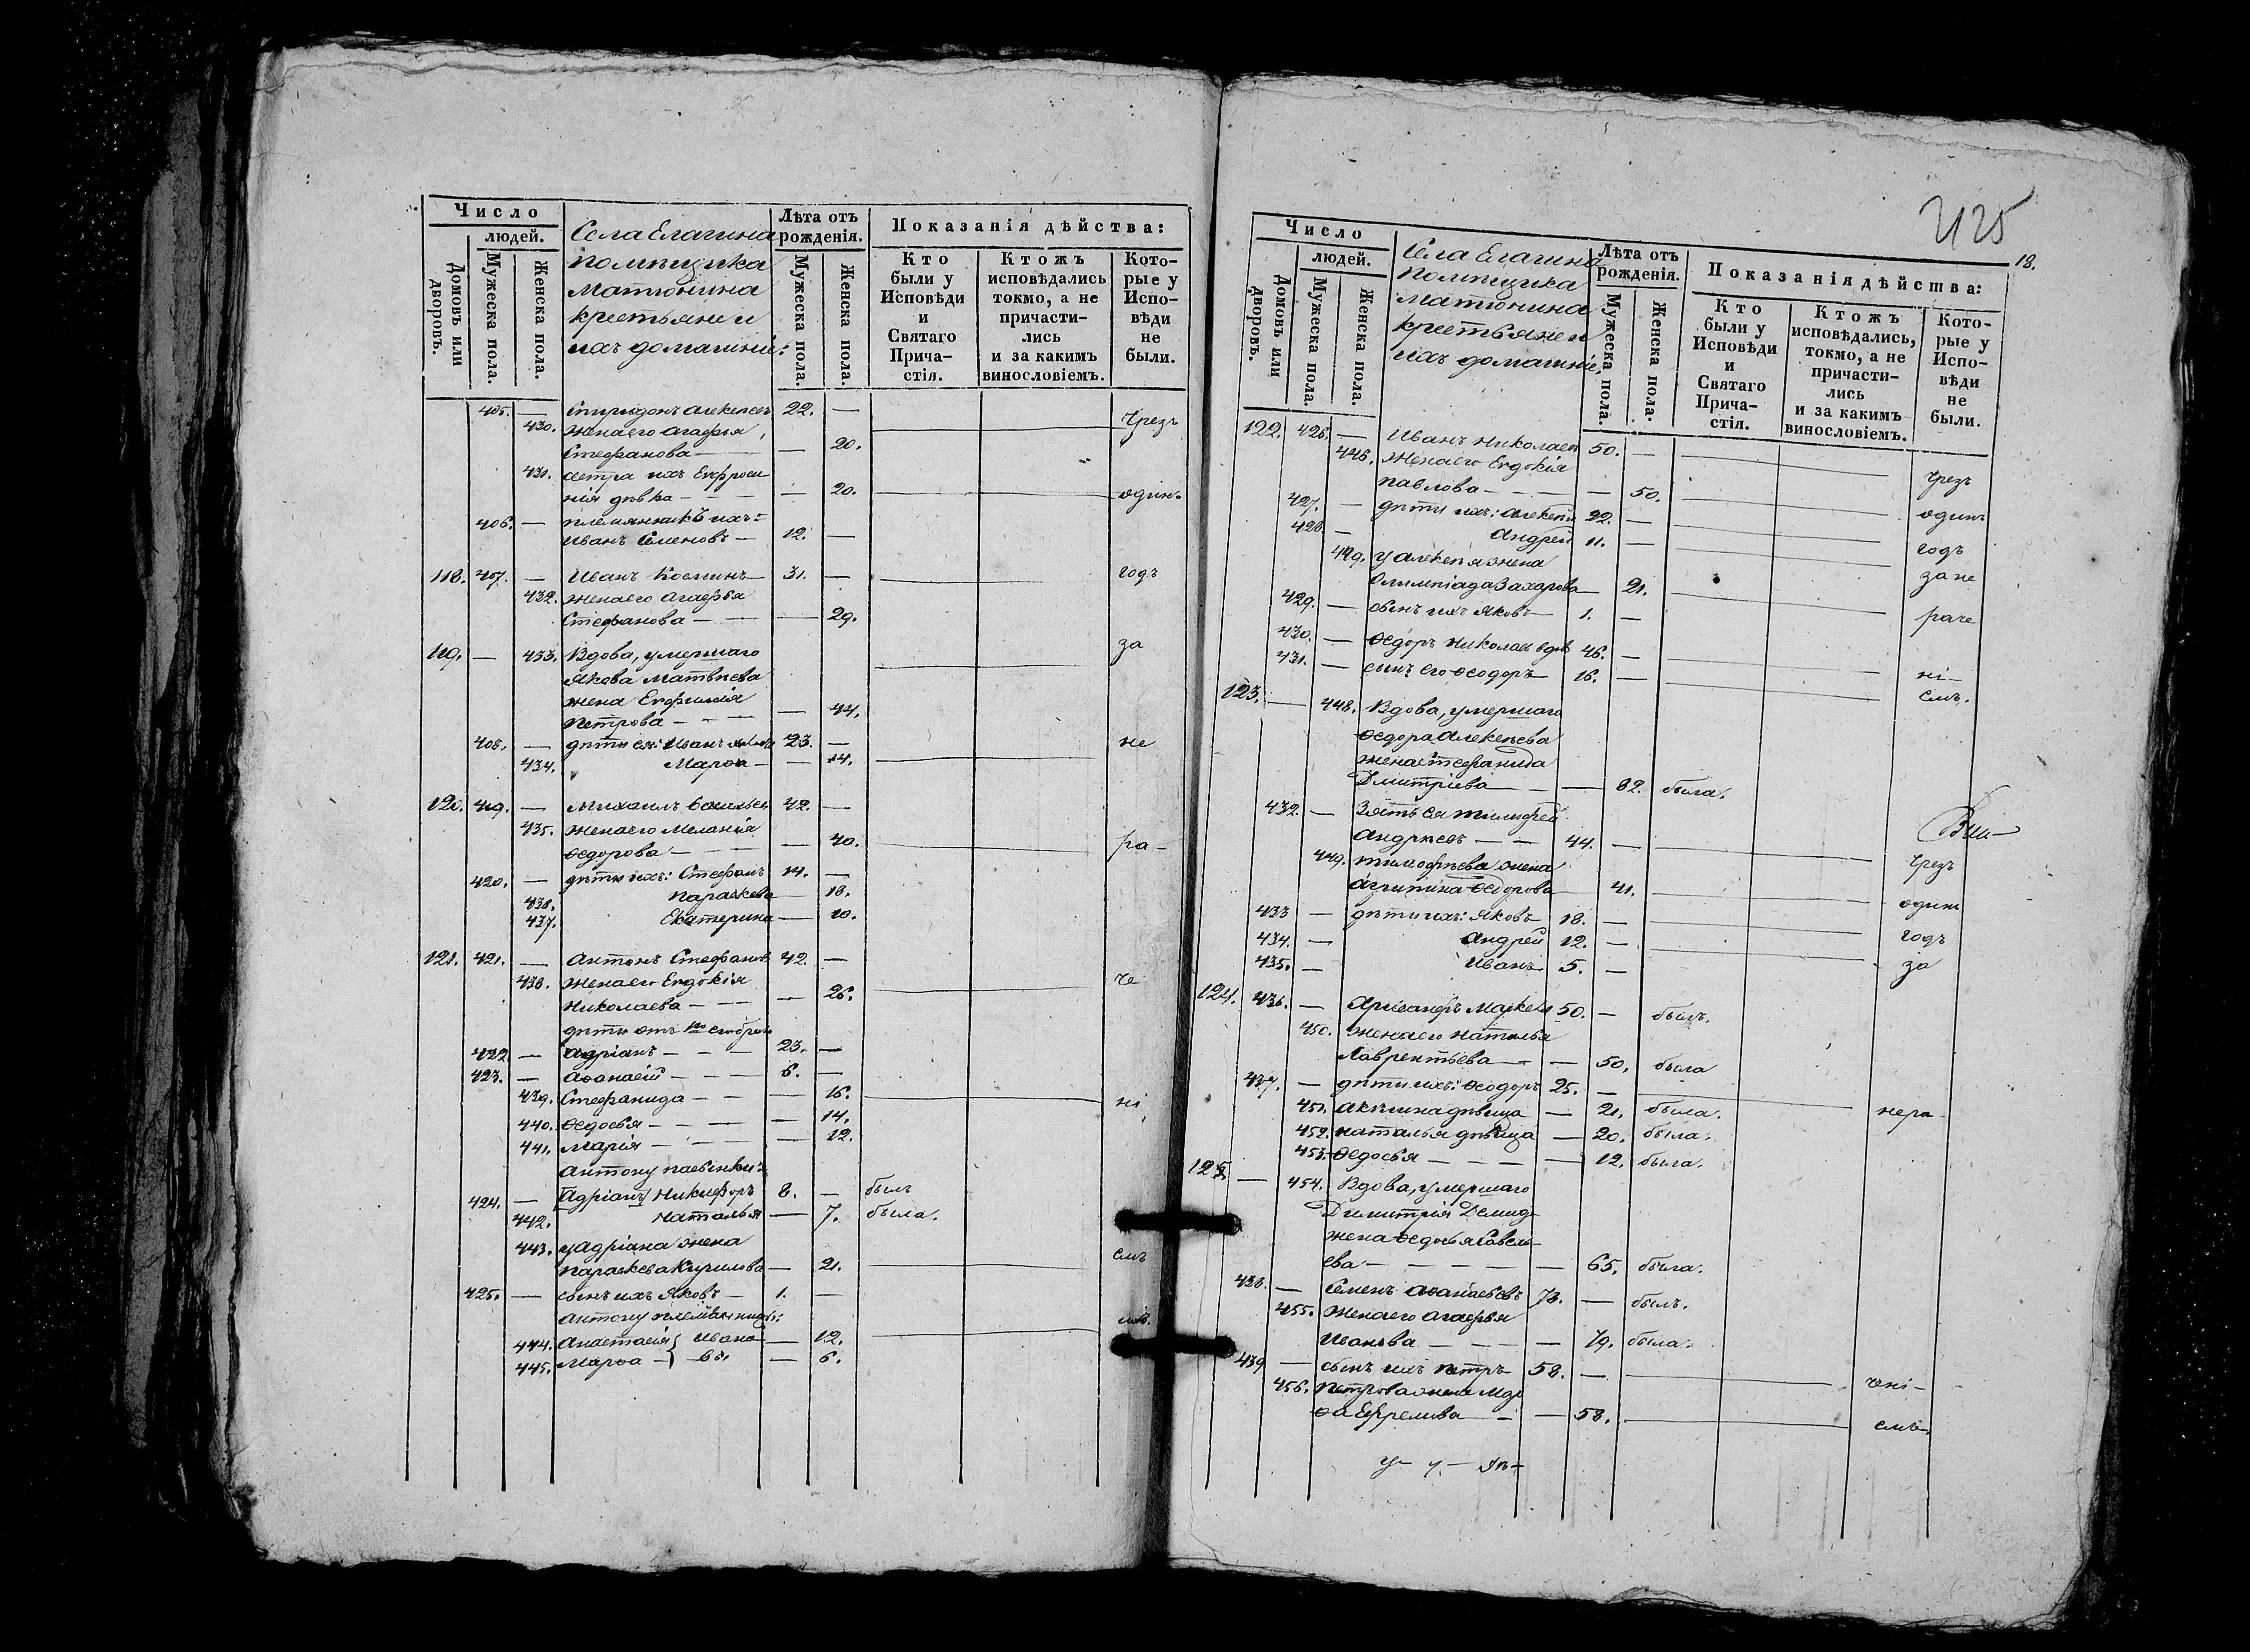 Число
людей.
Домовъ или дворовъ.
Мужеска пола.
Женска пола.
Села Елагина
помѣщика
Матюнина
крестьяне и
ихъ домашніе:
Лѣта отъ
рожденія.
Мужеска пола.
Женска пола.
Показанія дѣйства:
Кто
были у
Исповѣди
и
Святаго
Прича-
стія.
Ктожъ
исповѣдались
токмо, а не
причасти-
лись
и за какимъ
винословіемъ.
Кото-
рые у
Испо-
вѣди
не
были.
405. — Спиридонъ Алексеевъ 22. —
430. Жена его Агафья Чрезъ
Стефанова — — 20.
431. сестра ихъ Евфроси
нія дѣвка — — 20. одинъ
406. — племянникъ ихъ:
Иванъ Семеновъ — 12. —
118. 407. — Иванъ Козминъ 31. — годъ
432. Жена его Агафья
Стефанова — — 29.
119. — 433. Вдова, умершаго за
Якова Матвѣева
жена Евфимія
Петрова — — 44.
408. — дѣти ея: Иванъ 23. — не
434. Марѳа — — 14.
120. 419. — Михаилъ Васильевъ 42. —
435. Жена его Меланія
Ѳедорова — — 40. ра-
420. — дѣти ихъ: Стефанъ 14. —
436. Параскева 18.
437. Екатерина — 10.
121. 421. — Антонъ Стефановъ 42. —
438. Жена его Евдокія че
Николаева — — 26.
дѣти отъ 1го его брака
422. — Адріанъ — — 23. —
423. — Аѳанасій — — 6. —
439. Стефанида — — 16. ні
440. Ѳедосья — — 14.
441. Марія — — 12.
Антону пасынки:
424. — Адріанъ Никифоръ 8. — былъ
442. Наталья — 7. была.
443. у Адріана жена емъ
Параскева Кирилова — 21.
425. — сынъ ихъ Яковъ — 1. —
Антону племянницы:
444. Анастасія } Ивано — 12.
445. Марѳа — } вы — 6.
425
18.
Число
людей.
Домовъ или дворовъ.
Мужеска пола.
Женска пола.
Села Елагина
Помѣщика
Матюнина
крестьяне и
ихъ домашніе,
Лѣта отъ
рожденія.
Мужеска пола.
Женска пола.
Показанія дѣйства:
Кто
были у
Исповѣди
и
Святаго
Прича-
стія.
Ктожъ
исповѣдались,
токмо, а не
причасти-
лись
и за какимъ
винословіемъ.
Кото-
рые у
Испо-
вѣди
не
были.
122. 426. — Иванъ Николаевъ 50. —
446. Жена его Евдокія Чрезъ
Павлова — — — 50.
427. — дѣти ихъ: Алексѣй 22. — одинъ
428. — Андрей 11. — годъ
449. у Алексѣя жена за не
Олимпіада Захарова — 21.
429. — сынъ ихъ Яковъ — 1. — раче
430. — Ѳедоръ Николаевъ вдовъ 46. —
431. — сынъ его Ѳеодоръ 16. — ні-
123. — 448. Вдова, умершаго емъ.
Ѳедора Алексѣева
жена Стефанида
Дмитріева — — 82. была.
432. — Зять ея Тимофей
Андрѣевъ — — 44. —
449. Тимофѣева жена Чрезъ
Агрипина Ѳедорова 41.
433 — дѣти ихъ: Яковъ 18. — одинъ
434. — Андрей 12. — годъ
435. — Иванъ 5. — за
124. 436. — 50. — былъ.
450. Жена его Наталья
Лаврентьева — — 50. была
437. — дѣти ихъ: Ѳеодоръ 25. —
451. Аксинья дѣвица — 21. была. нера
452. Наталья дѣвица — 20. была.
453. Ѳедосья — — — 12. была.
125. — 454. Вдова, умершаго
Димитрія Демидо
жена Ѳедосья Савель-
ева — — — — 65. была.
438. — Семенъ Аѳанасьевъ 73. — былъ.
455. Жена его Агафья
Иванова — — — 79. была.
439 — сынъ ихъ Петръ 58. — чені-
456. Петрова жена
Ефремова — — 58. емъ.